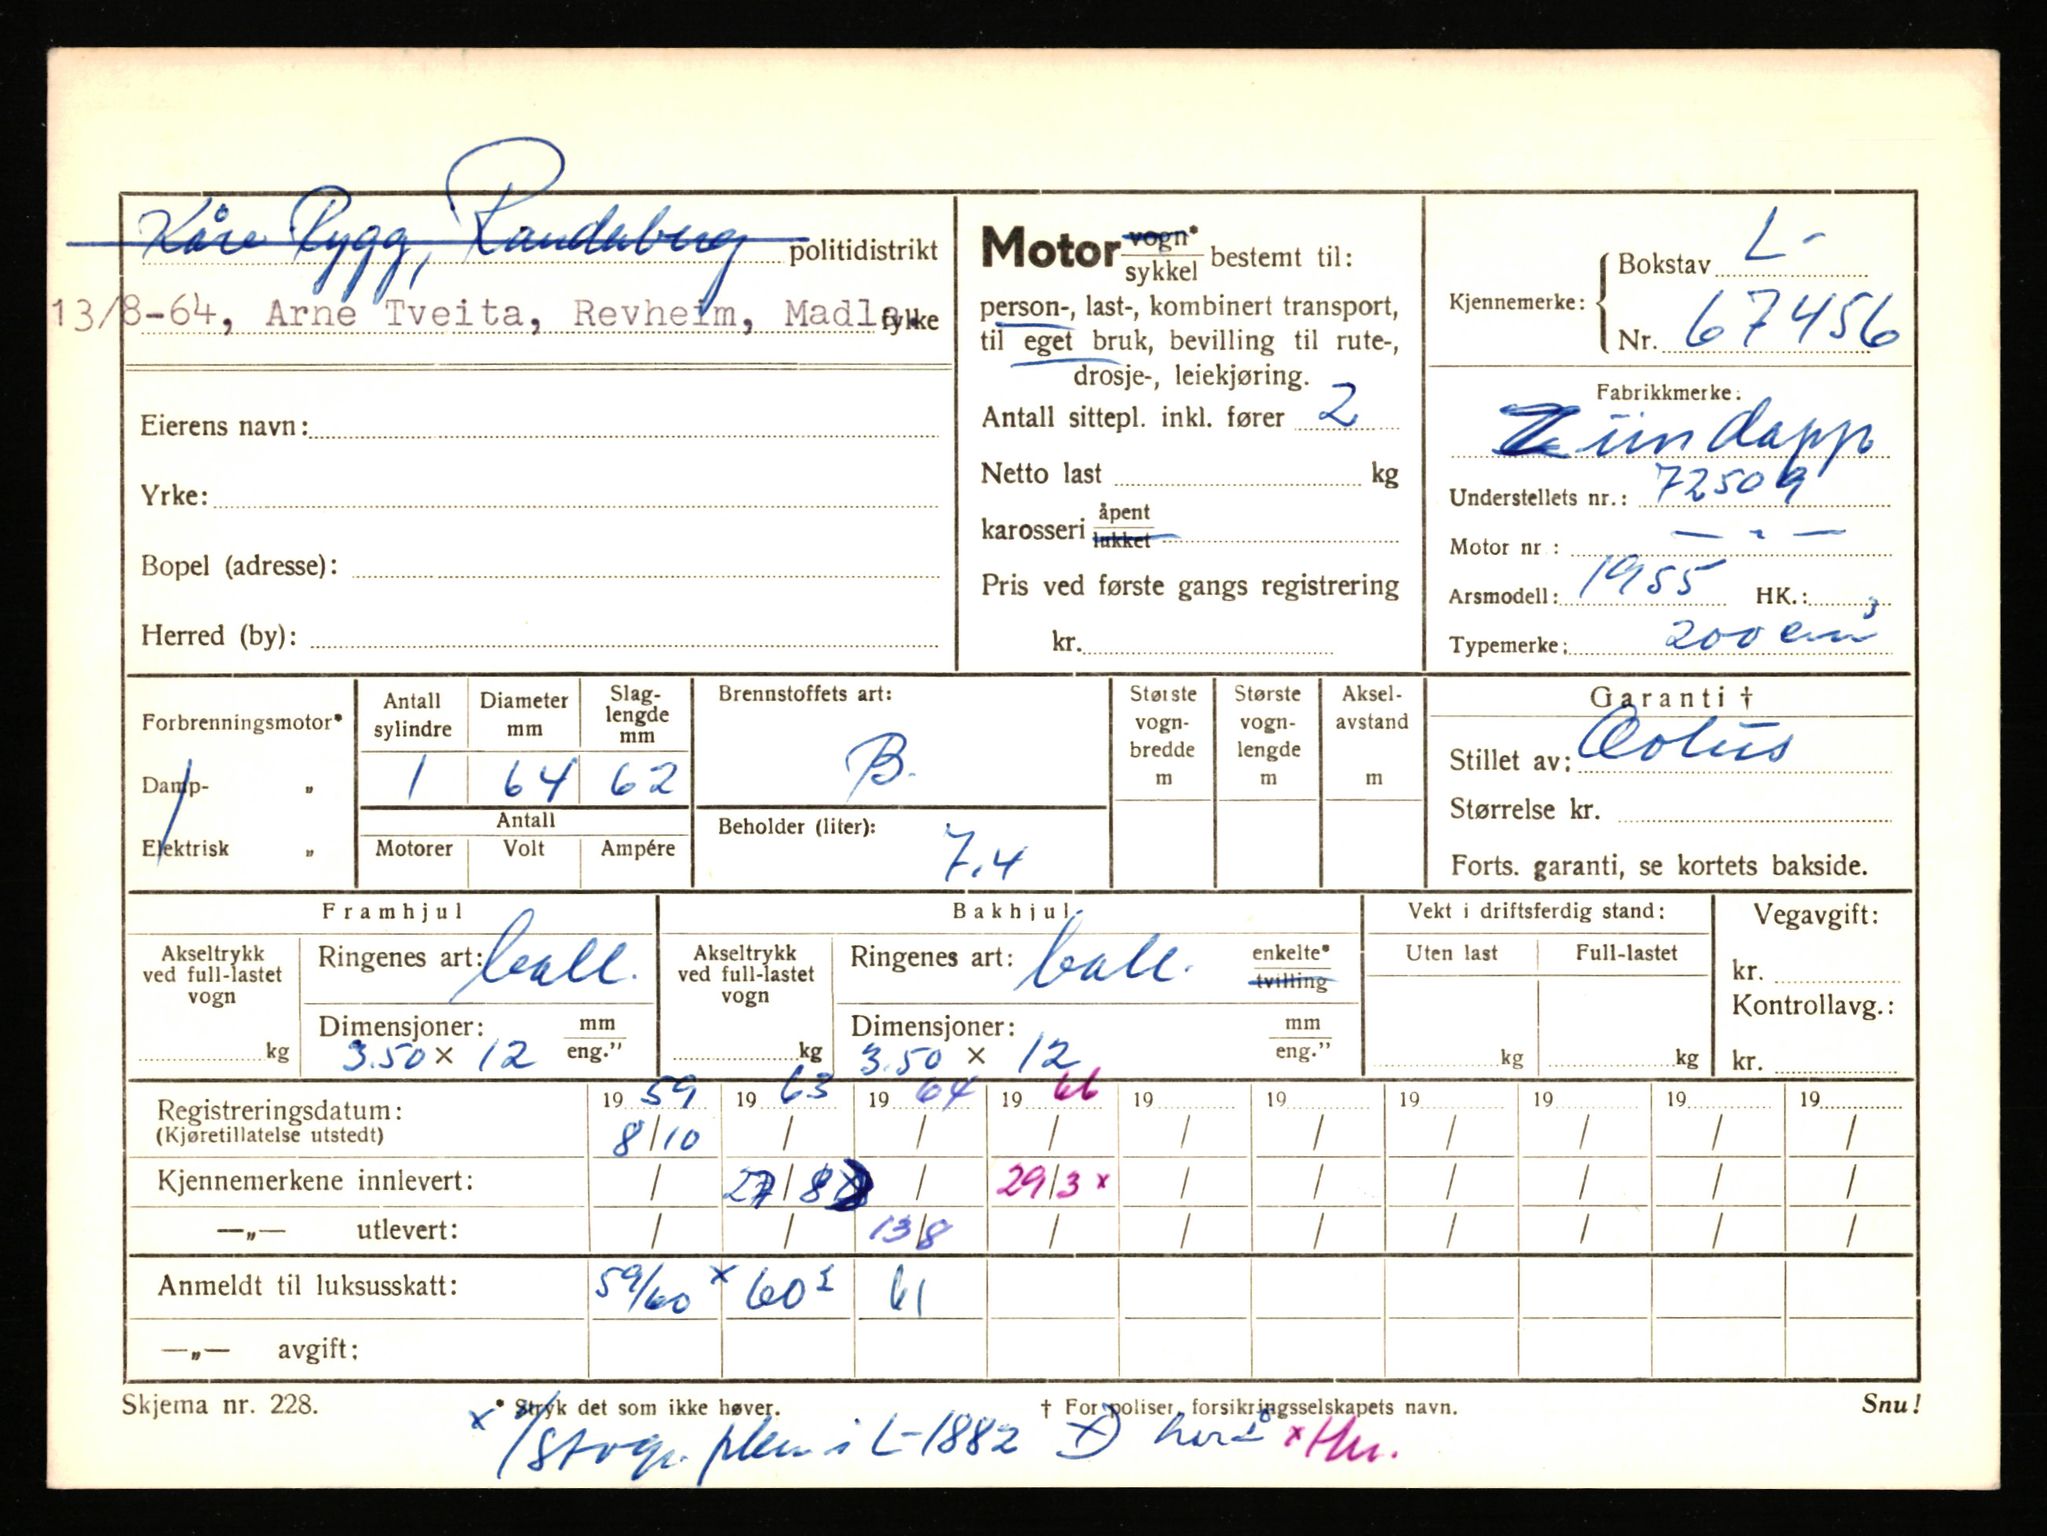 Kåre Rygg, Randaberg politidistrikt
13/8-64, Arne Tveita, Revheim, Madla. fylke
Eierens navn:
Yrke:
Bopel (adresse):
Herred (by):
Motor vogn* sykkel bestemt til:
person-, last-, kombinert transport,
til eget bruk, bevilling til rute-,
drosje-, leiekjøring.
Antall sittepl. inkl. fører 2
Netto last kg
karosseri åpent lukket
Pris ved første gangs registrering
kr.
Kjennemerke: Bokstav L-
Nr. 67456
Fabrikkmerke:
Zündapp
Understellets nr.: 72509
Motor nr : — " —
Arsmodell: 1955 HK.:
Typemerke: 200 cm3
Forbrenningsmotor*
Damp- „
Elektrisk „
Antall sylindre
Diameter mm
Slag-lengde mm
1 64 62
Antall
Motorer Volt Ampére
Brennstoffets art:
B.
Beholder (liter):
7.4
Største vogn-bredde m
Største vogn-lengde m
Aksel-avstand m
Garanti †
Stillet av:
Størrelse kr.
Forts. garanti, se kortets bakside.
Framhjul
Akseltrykk ved full-lastet vogn kg
Ringenes art: ball.
Dimensjoner: mm eng."
3.50 × 12
Bakhjul
Akseltrykk ved full-lastet vogn kg
Ringenes art: ball. enkelte* tvilling
Dimensjoner: mm eng."
3.50 × 12
Vekt i driftsferdig stand:
Uten last Full-lastet
kg kg
Vegavgift:
kr.
Kontrollavg.:
kr.
Registreringsdatum: 19 59 19 63 19 64 19 66 19 19 19 19 19 19
(Kjøretillatelse utstedt) 8/10 / / / / / / / / /
Kjennemerkene innlevert: / 27/8 / 29/3 x / / / / / /
—„— utlevert: / / 13/8 / / / / / / /
Anmeldt til luksusskatt: 59/60 x 60 61
—„— avgift:
Skjema nr. 228. * Stryk det som ikke høver. † For poliser, forsikringsselskapets navn. Snu!
x i L-1882